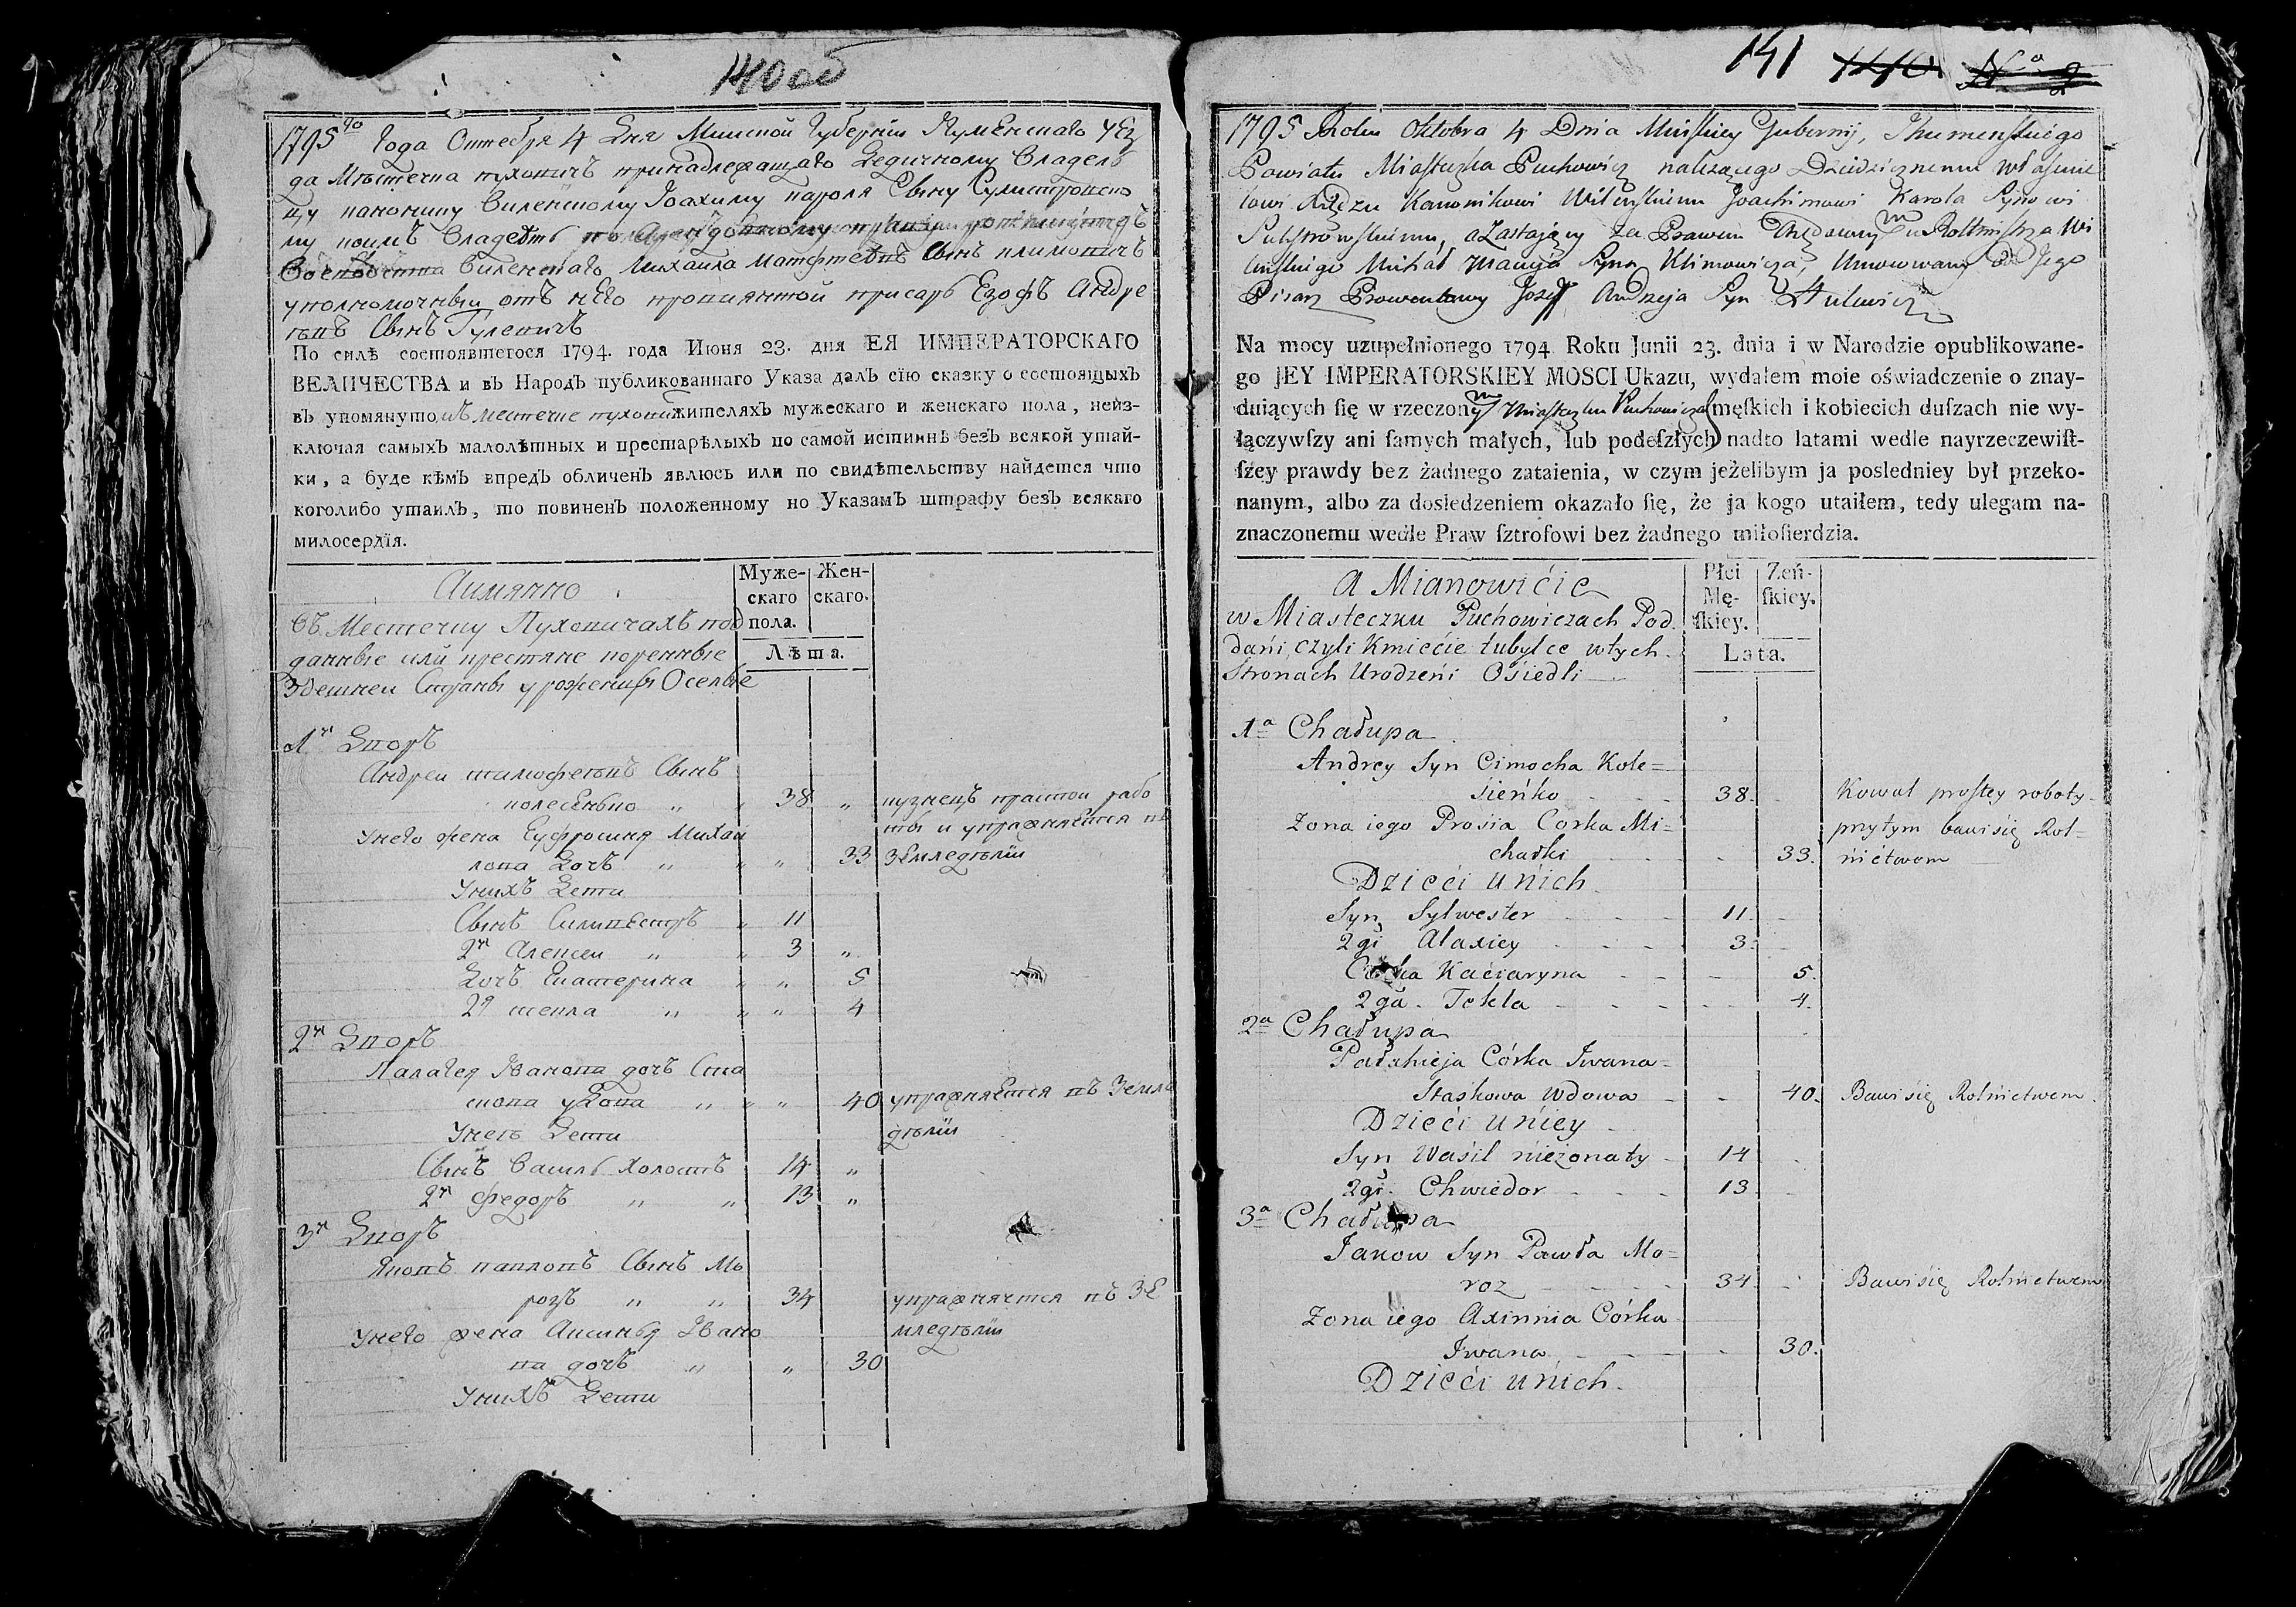 140 об
1795го Года Октебря 4 Дня Минской Губернiи Игуменскаго Уез
да Мѣстечка пуховичъ принадлежащаго Дедичному Владель
цу канонику Виленскому Iоахиму кароля Сыну Сулистровско
му коимъ Владеетъ по Арендовному
Воеводства Виленскаго Михаила Матфеевъ Сынъ климовичъ
уполномочный отъ него провиянтой писарь Езофъ Андре
евъ Сынъ Гулевичъ
По силѣ состоявшегося 1794. года Июня 23. дня ЕЯ ИМПЕРАТОРСКАГО
ВЕЛИЧЕСТВА и въ Народъ публикованнаго Указа далъ сїю сказку о состоящыхъ
въ упомянутомъ местечке пухови жителяхъ мужескаго и женскаго пола, неиз-
ключая самыхъ малолѣтных и престарѣлыхъ по самой истиннѣ безъ всякой утай-
ки, а буде кѣмъ впредь обличенъ явлюсь или по свидѣтельству найдется что
коголибо утаилъ, то повиненъ положенному по Указамъ штрафу безъ всякаго
милосердїя.
Аимянно
Въ Местечку Пуховичахъ под
данные или крестяне коренные
Здешнеи Страны уроженцы Оселые
Муже-
скаго
пола.
Жен-
скаго.
Лѣта.
1й Дворъ
Андреи тимофеевъ Сынъ
колесенько " " 38 " кузнецъ простои рабо
ты и упражняется въ
Унего жена Еуфросиня Михаи
лова Дочъ " " " 33 земледелїи
Унихъ Дети
Сынъ Силивестръ " 11
2й Алексеи " " 3 "
Дочъ Екатерина " " 5
2я текла " " " 4
2й Дворъ
Палагея Иванова дочъ Ста
скова удова " " " 40 упражняется въ Земле
делїи
Унеи Дети
Сынъ Василь Холостъ 14 "
2й федоръ " " 13 "
3й Дворъ
Яковъ павловъ Сынъ Мо
розъ " " 34 упражняется въ Зе
мледелїи
Унего жена Аксинья Ивано
ва дочъ " " 30
Унихъ Дети
141 140 No 2
1795 Roku Oktobra 4 Dnia Minskiey Gubernij, Ihumenskiego
Powiatu Miasteczka Puchowicz należącego Dziedzicznemu właścicie
lowi Xiędzu Kanonikowi Wileńskiemu Joachimowi Karola Synowi
Sulistrowskiemu, a Zastający za Prawem Arędownym u Rotmistrza Wi
leńskiego Michał Macieja Syna Klimowicza, Umocowany od Jego
Pisarz Prowentowy Josef Andrzeja Syn Hulewicz
Na mocy uzupełnionego 1794 Roku Junii 23. dnia i w Narodzie opublikowane-
go JEY IMPERATORSKIEY MOSCI Ukazu, wydałem moie oświadczenie o znay-
duiących ſię w rzeczonym Miasteczku Puchowiczach męſkich i kobiecich duſzach nie wy-
łączywſzy ani ſamych małych, lub podeſzłych nadto latami wedle nayrzeczewiſt-
ſzey prawdy bez żadnego zataienia, w czym jeżelibym ja posledniey był przeko-
nanym, albo za dosledzeniem okazało ſię, że ja kogo utaiłem, tedy ulegam na-
znaczonemu wedle Praw ſztrofowi bez żadnego miłoſierdzia.
A Mianowićie
w Miasteczku Puchowiczach Pod
dańi, czyli Kmiećie tubylce wtych
Stronach Urodzeńi Ośiedli
Płci
Mę-
ſkiey.
Zeń-
ſkiey.
Lata.
1a Chałupa
Andrey Syn Cimocha Kole=
sieńko 38. Kowal prostey roboty
Zona iego Prosia Corka Mi= przytym bawi się Rol=
chałki 33. nićtwem
Dzieći unich
Syn Sylwester 11.
2gi Alaxiey 3.
Corka Kaciaryna 5.
2ga. Tekla 4.
2a Chałupa
Pałahieja Córka Jwana=
Staskowa Wdowa 40. Bawi się Rolnictwem.
Dzieći uniey
Syn Waśil nieżonaty 14
2gi. Chwiedor 13
3a Chałupa
Jakow Syn Pawła Mo=
roz 34 Bawi się Rolnictwem
Zona iego Axinnia Córka
Jwana 30.
Dzieći unich.